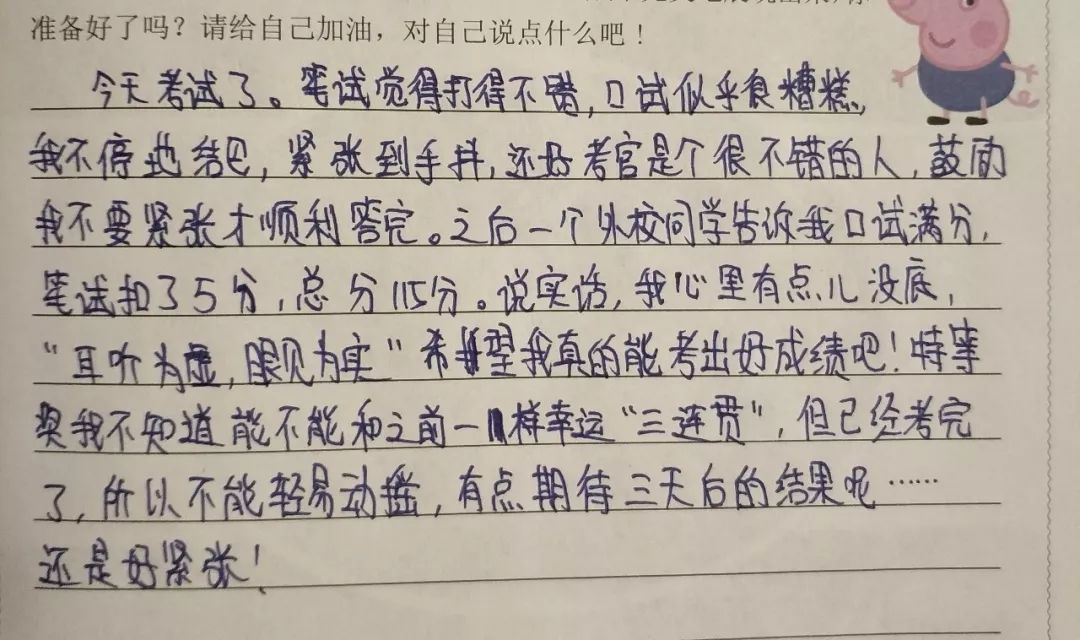 准备好了吗？请给自己加油，对自己说点什么吧！
今天考试了。笔试觉得打得不错，口试似乎食糟糕，
我不停地结巴，紧张到手抖，还好考官是个很不错的人，鼓励
我不要紧张才顺利答完。之后一个外校同学告诉我口试满分，
笔试扣了5分，总分115分。说实话，我心里有点儿没底，
“耳听为虚，眼见为实”希望我真的能考出好成绩吧！特等
奖我不知道能不能和之前一样幸运“三连贯”，但已经考完
了，所以不能轻易动摇，有点期待三天后的结果呢……
还是好紧张！